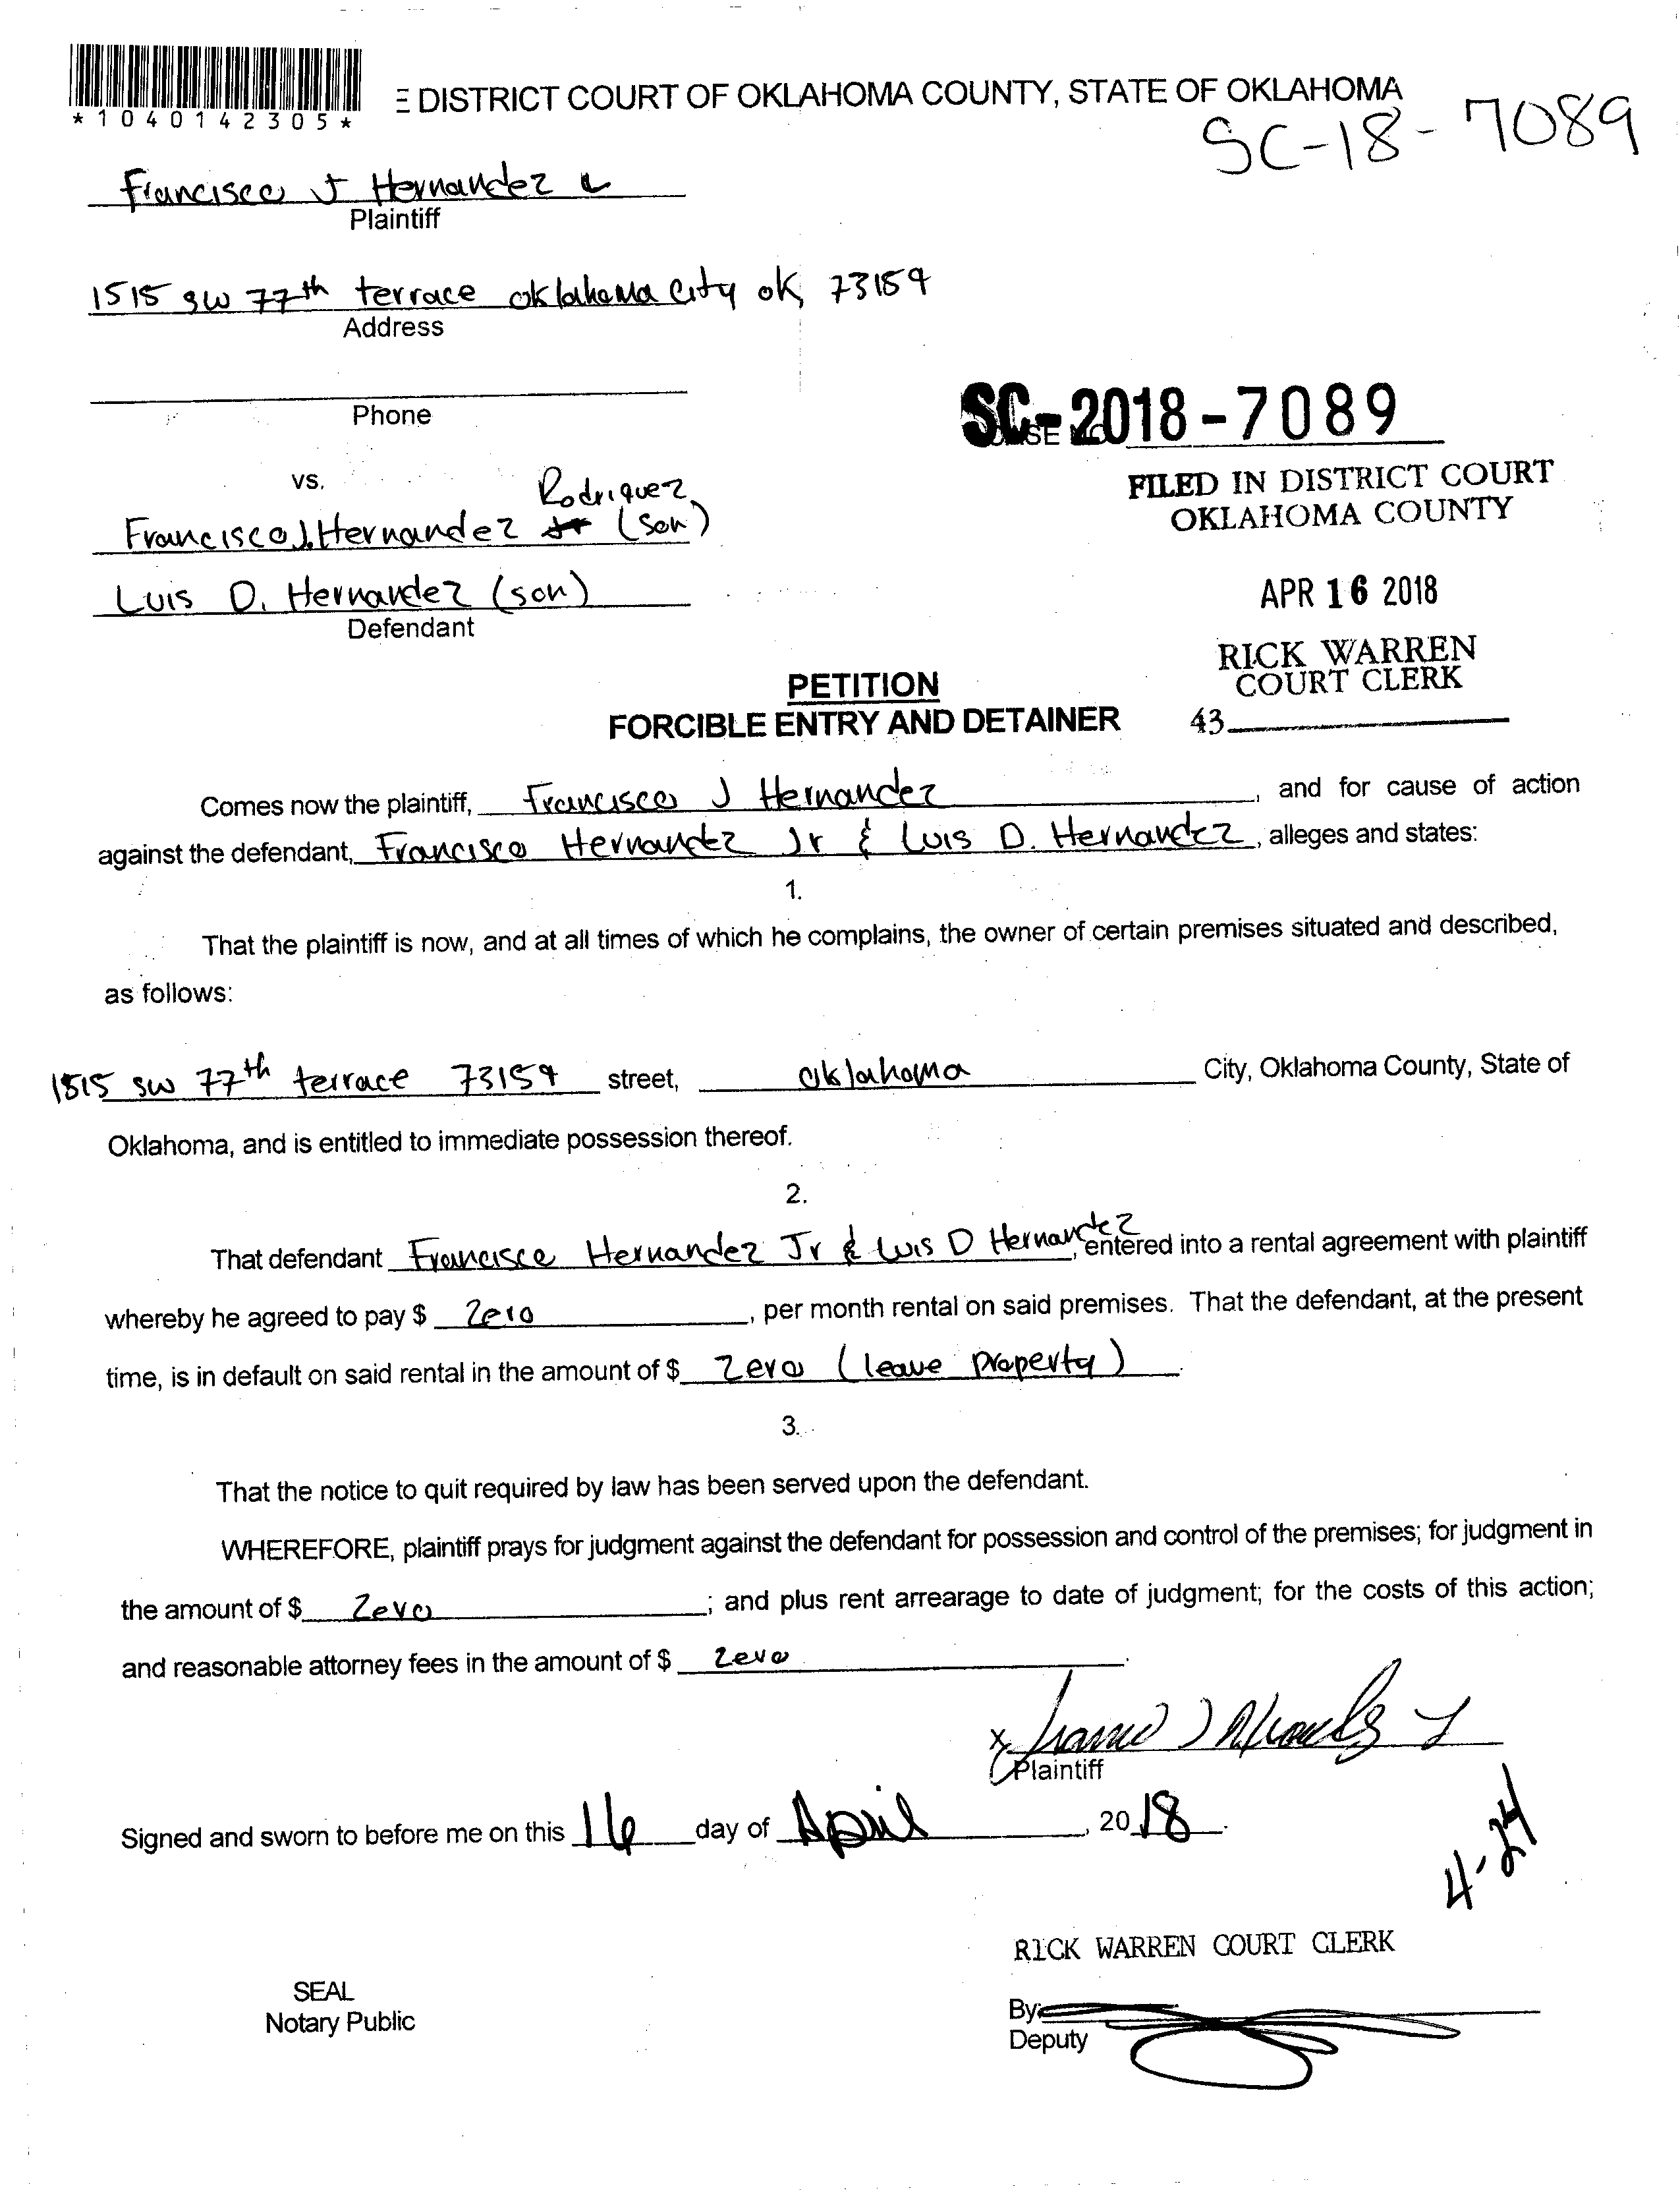 *1040142305*
E DISTRICT COURT OF OKLAHOMA COUNTY, STATE OF OKLAHOMA
SC-18-7089
Francisco J Hernandez L
Plaintiff
1515 SW 77th terrace oklahoma city ok, 73159
Address
Phone
SC-2018-7089
vs.
Rodriguez
Francisco J. Hernandez Jr (son)
Luis D. Hernandez (son)
Defendant
FILED IN DISTRICT COURT
OKLAHOMA COUNTY
APR 16 2018
RICK WARREN
COURT CLERK
43
PETITION
FORCIBLE ENTRY AND DETAINER
Comes now the plaintiff, Francisco J Hernandez, and for cause of action
against the defendant, Francisco Hernandez Jr & Luis D. Hernandez, alleges and states:
1.
That the plaintiff is now, and at all times of which he complains, the owner of certain premises situated and described,
as follows:
1515 SW 77th terrace 73159 street, Oklahoma City, Oklahoma County, State of
Oklahoma, and is entitled to immediate possession thereof.
2.
That defendant Francisco Hernandez Jr & Luis D Hernandez, entered into a rental agreement with plaintiff
whereby he agreed to pay $ Zero, per month rental on said premises. That the defendant, at the present
time, is in default on said rental in the amount of $ Zero (leave property).
3.
That the notice to quit required by law has been served upon the defendant.
WHEREFORE, plaintiff prays for judgment against the defendant for possession and control of the premises; for judgment in
the amount of $ Zero; and plus rent arrearage to date of judgment; for the costs of this action;
and reasonable attorney fees in the amount of $ Zero.
x
Plaintiff
Signed and sworn to before me on this 16 day of April, 2018.
4-24
RICK WARREN COURT CLERK
SEAL
Notary Public
By
Deputy